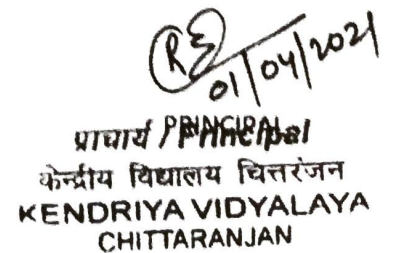 01/04/2021
प्राचार्य / Principal
केन्द्रीय विद्यालय चित्तरंजन
KENDRIYA VIDYALAYA
CHITTARANJAN